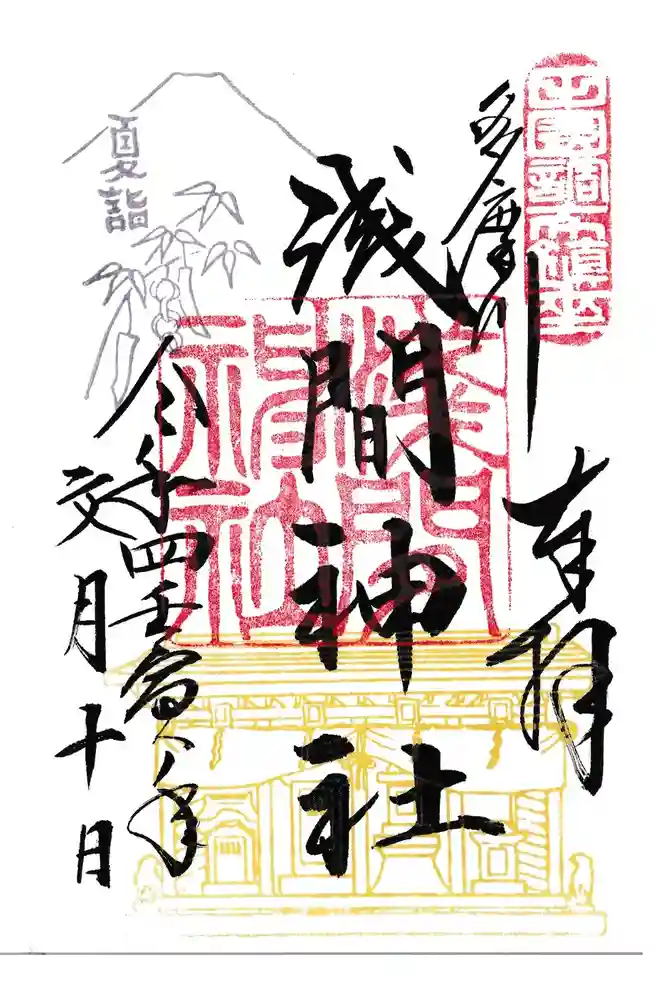 田園調布鎮座
奉拝
多摩川
浅間神社
淺間神社
令和四壬寅年
文月十日
夏詣